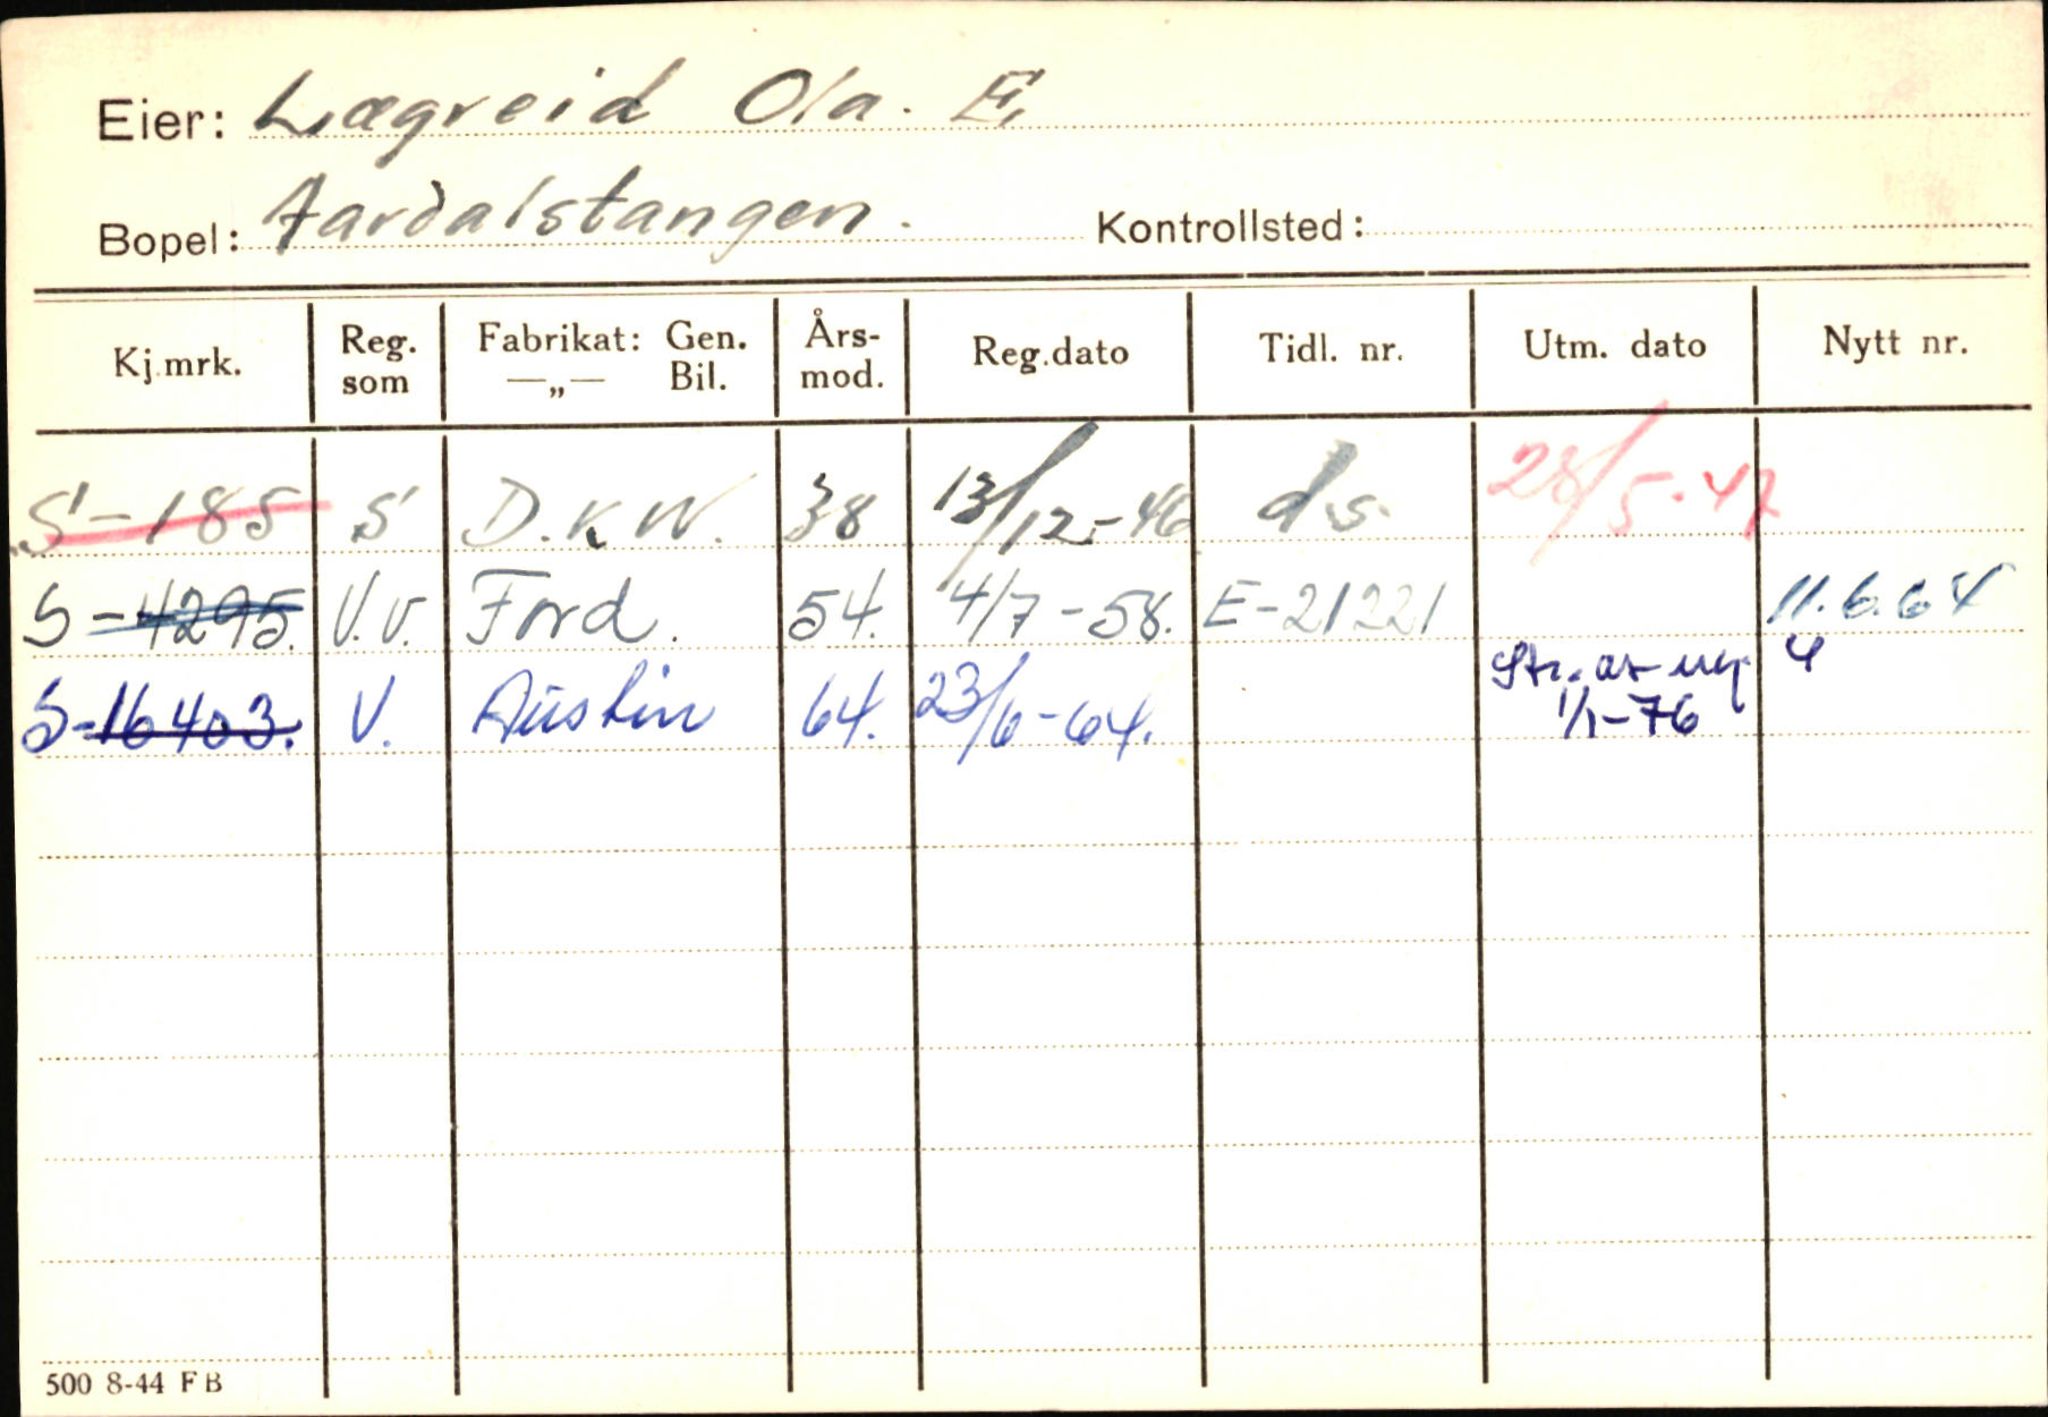 Eier: Lægreid Ola. E.
Bopel: Aardalstangen. Kontrollsted:
Kj.mrk. Reg. som Fabrikat: Gen. —„— Bil. Års-mod. Reg.dato Tidl. nr. Utm. dato Nytt nr.
S-185 S D.K.W. 38 13/12-46 d.s. 28/5-47
S-4295. V.V. Ford. 54. 4/7-58. E-21221 11.6.64
S-16403. V. Austin 64. 23/6-64. Str. av reg. 4
1/1-76
500 8-44 FB